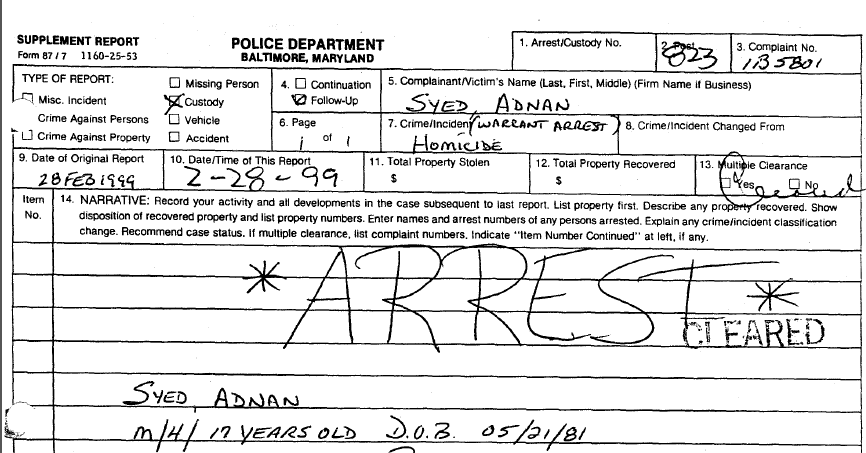 SUPPLEMENT REPORT
Form 87/7 1160-25-53
POLICE DEPARTMENT
BALTIMORE, MARYLAND
1. Arrest/Custody No.
2. Post
823
3. Complaint No.
1B5801
TYPE OF REPORT:
Misc. Incident
Crime Against Persons
Crime Against Property
Missing Person
Custody
Vehicle
Accident
4. Continuation
Follow-Up
5. Complainant/Victim's Name (Last, First, Middle) (Firm Name if Business)
SYED, ADNAN
6. Page
1 of 1
7. Crime/Incident (WARRANT ARREST)
HOMICIDE
8. Crime/Incident Changed From
9. Date of Original Report
28 FEB 1999
10. Date/Time of This Report
2-28-99
11. Total Property Stolen
$
12. Total Property Recovered
$
13. Multiple Clearance
Yes No
Item
No.
14. NARRATIVE: Record your activity and all developments in the case subsequent to last report. List property first. Describe any property recovered. Show
disposition of recovered property and list property numbers. Enter names and arrest numbers of any persons arrested. Explain any crime/incident classification
change. Recommend case status. If multiple clearance, list complaint numbers. Indicate "Item Number Continued" at left, if any.
* ARREST *
CLEARED
SYED, ADNAN
M/4/ 17 YEARS OLD D.O.B. 05/21/81